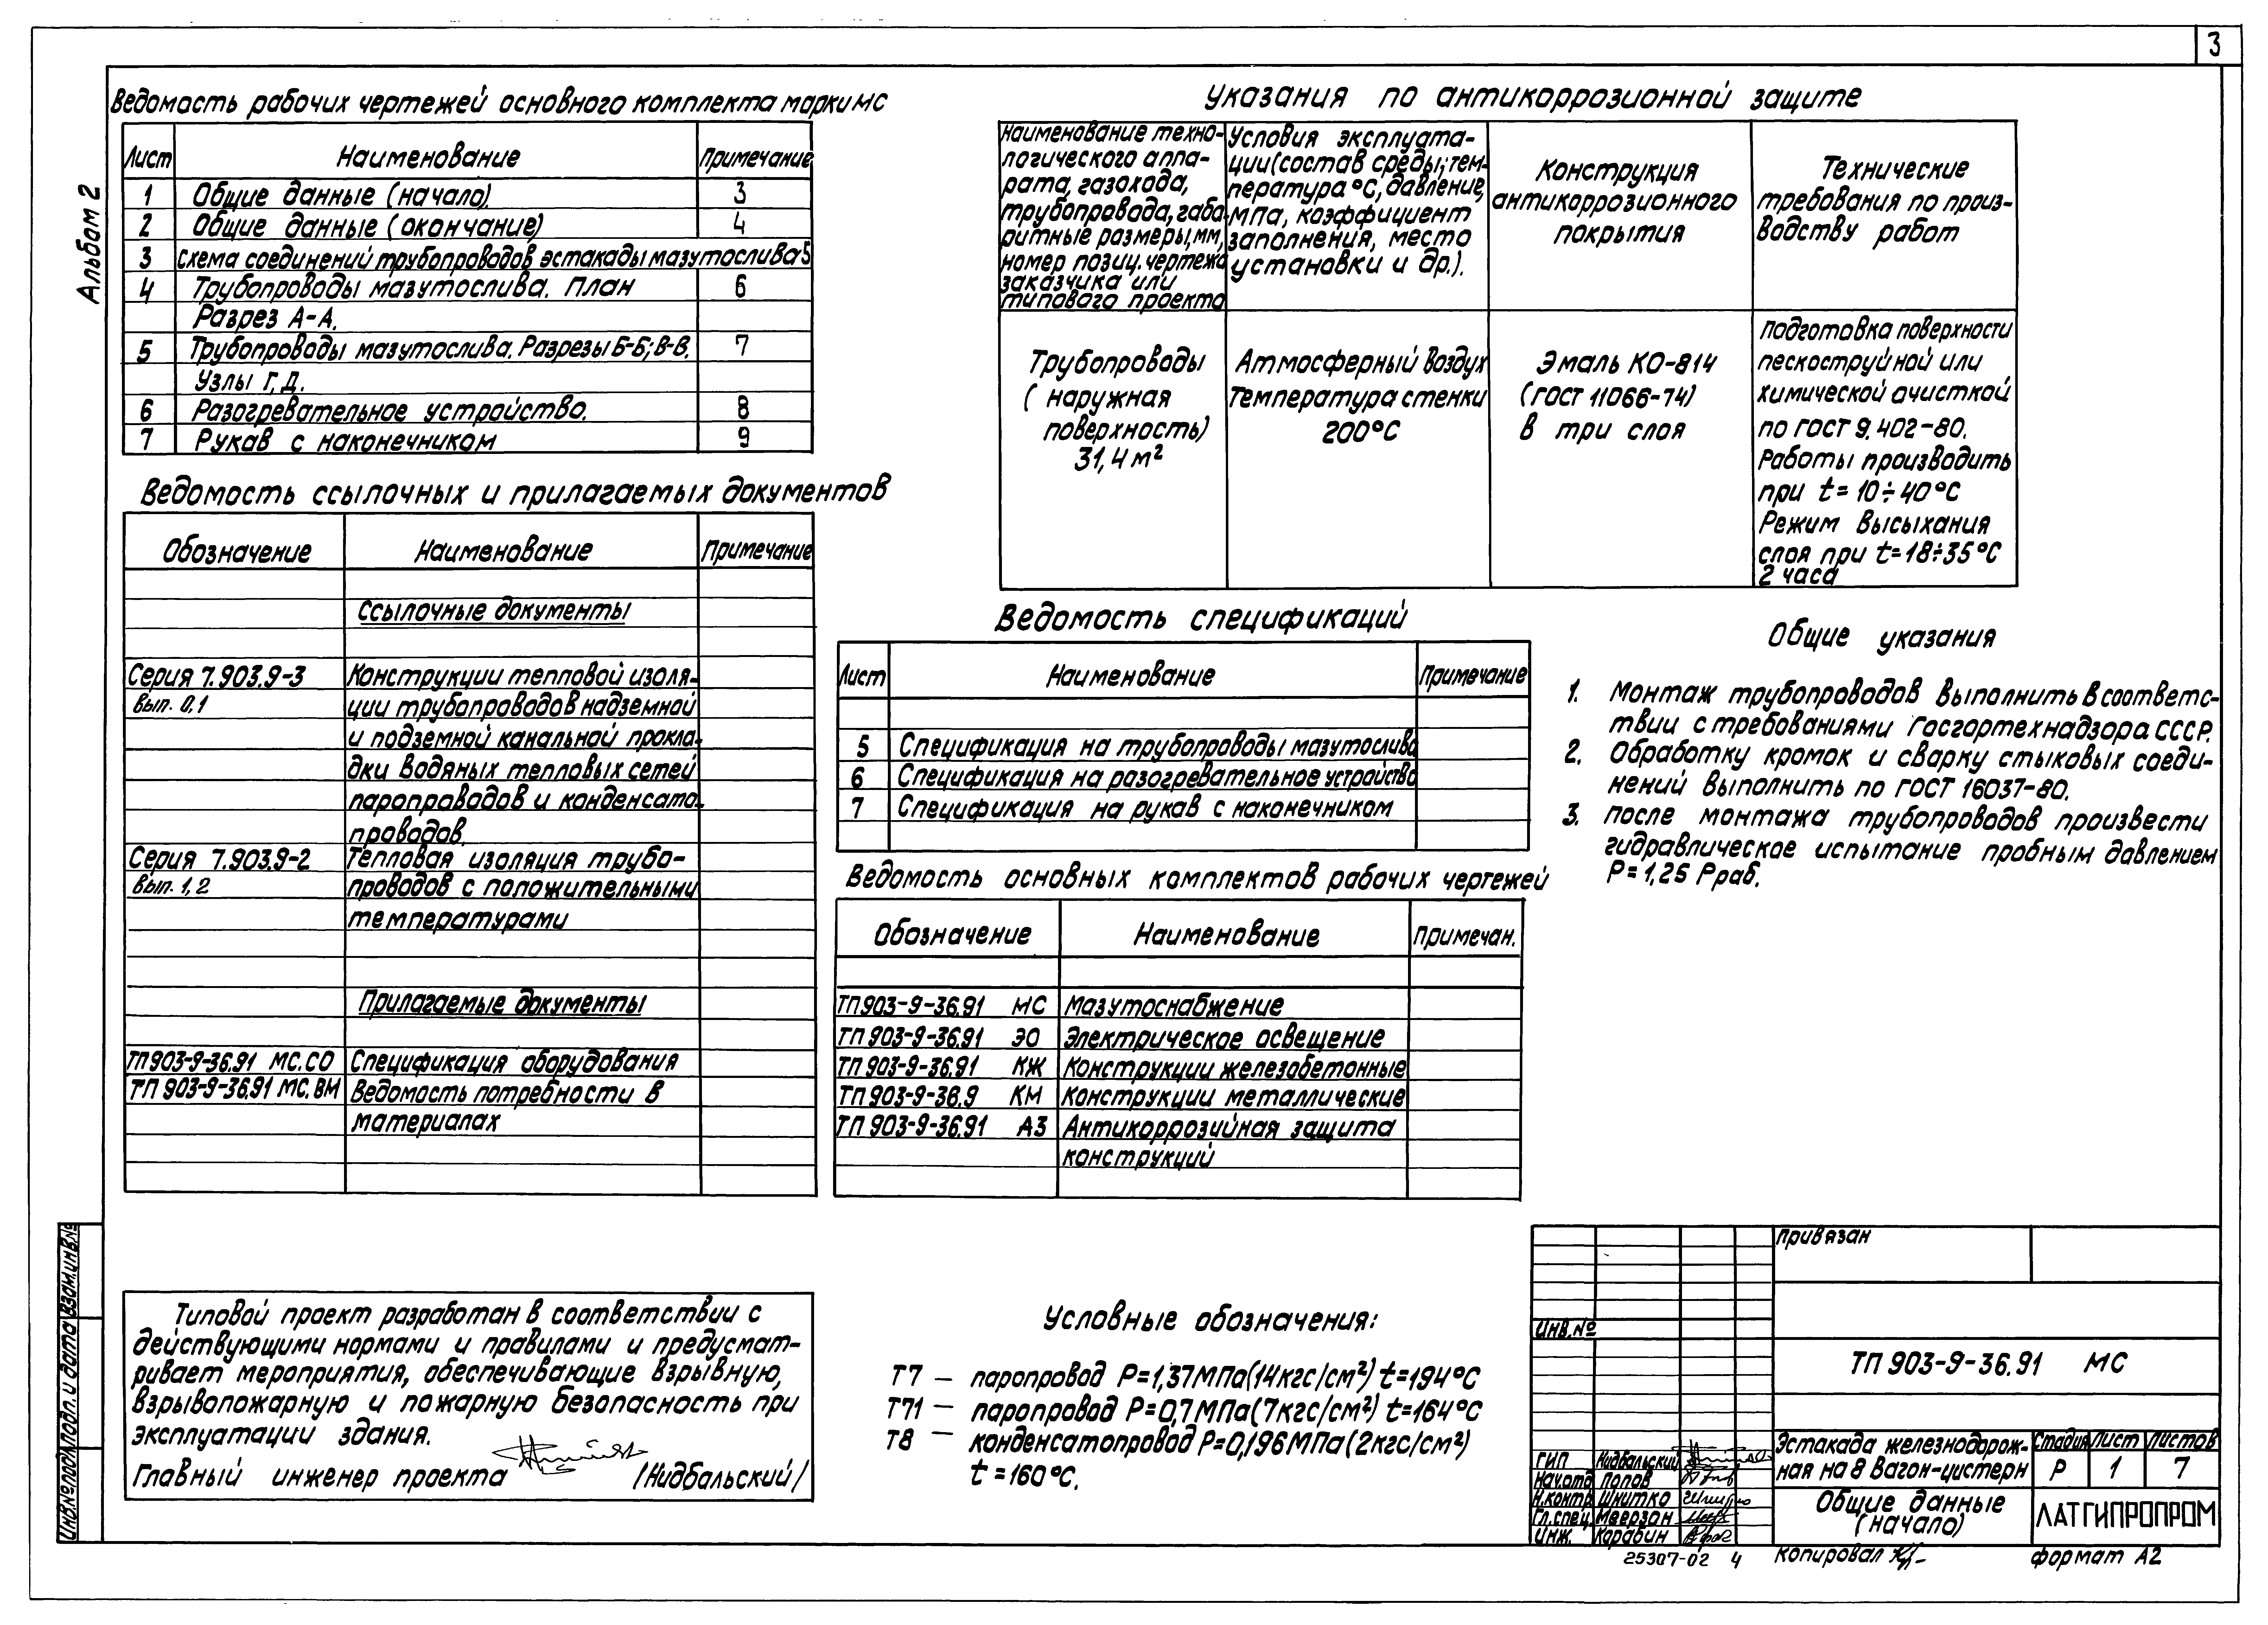 3
Альбом 2
Ведомость рабочих чертежей основного комплекта марки МС
Лист Наименование Примечание
1 Общие данные (начало). 3
2 Общие данные (окончание) 4
3 Схема соединений трубопроводов эстакады мазутослива 5
4 Трубопроводы мазутослива. План 6
Разрез А-А.
5 Трубопроводы мазутослива. Разрезы Б-Б; В-В. 7
Узлы Г, Д.
6 Разогревательное устройство. 8
7 Рукав с наконечником 9
Ведомость ссылочных и прилагаемых документов
Обозначение Наименование Примечание
Ссылочные документы
Серия 7.903.9-3 Конструкции тепловой изоля-
вып. 0,1 ции трубопроводов надземной
и подземной канальной прокла-
дки водяных тепловых сетей
паропроводов и конденсато-
проводов.
Серия 7.903.9-2 Тепловая изоляция трубо-
вып. 1, 2 проводов с положительными
температурами
Прилагаемые документы
ТП 903-9-36.91 МС.СО Спецификация оборудования
ТП 903-9-36.91 МС.ВМ Ведомость потребности в
материалах
Указания по антикоррозионной защите
Наименование техно-
логического аппа-
рата, газохода,
трубопровода, габа-
ритные размеры, мм,
номер позиц. чертежа
заказчика или
типового проекта
Условия эксплуата-
ции (состав среды; тем-
пература °С, давление,
МПа, коэффициент
заполнения, место
установки и др.).
Конструкция
антикоррозионного
покрытия
Технические
требования по произ-
водству работ
Трубопроводы
( наружная
поверхность)
31,4 м²
Атмосферный воздух
Температура стенки
200°С
Эмаль КО-814
(ГОСТ 11066-74)
в три слоя
Подготовка поверхности
пескоструйной или
химической очисткой
по ГОСТ 9.402-80.
Работы производить
при t = 10÷40°С
Режим высыхания
слоя при t=18÷35°С
2 часа
Ведомость спецификаций
Лист Наименование Примечание
5 Спецификация на трубопроводы мазутослива
6 Спецификация на разогревательное устройство
7 Спецификация на рукав с наконечником
Ведомость основных комплектов рабочих чертежей
Обозначение Наименование Примечан.
ТП 903-9-36.91 МС Мазутоснабжение
ТП 903-9-36.91 ЭО Электрическое освещение
ТП 903-9-36.91 КЖ Конструкции железобетонные
ТП 903-9-36.9 КМ Конструкции металлические
ТП 903-9-36.91 АЗ Антикоррозийная защита
конструкций
Общие указания
1. Монтаж трубопроводов выполнить в соответс-
твии с требованиями Госгортехнадзора СССР.
2. Обработку кромок и сварку стыковых соеди-
нений выполнить по ГОСТ 16037-80.
3. После монтажа трубопроводов произвести
гидравлическое испытание пробным давлением
Р=1,25 Рраб.
Типовой проект разработан в соответствии с
действующими нормами и правилами и предусмат-
ривает мероприятия, обеспечивающие взрывную,
взрывопожарную и пожарную безопасность при
эксплуатации здания.
Главный инженер проекта /Нидбальский/
Условные обозначения:
Т7 — паропровод Р=1,37МПа(14кгс/см²) t=194°С
Т71 — паропровод Р=0,7МПа(7кгс/см²) t=164°С
Т8 — конденсатопровод Р=0,196МПа(2кгс/см²)
t =160°С.
Привязан
Инв.№
ТП 903-9-36.91 МС
ГИП Нидбальский
Нач.отд Попов
Н.контр Шнитко
Гл.спец. Меерзон
Инж. Карабин
Эстакада железнодорож-
ная на 8 вагон-цистерн
Стадия Лист Листов
Р 1 7
Общие данные
(начало)
ЛАТГИПРОПРОМ
25307-02 4 Копировал Формат А2
Инв.№подл. Подп. и дата Взам.инв.№